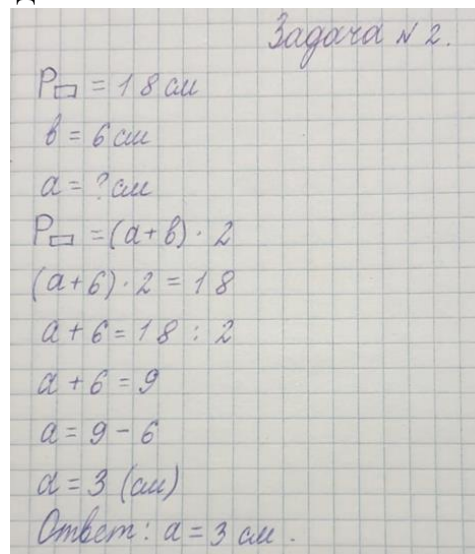 Задача №2.
P▭ = 18 см
в = 6 см
а = ? см
P▭ = (а + в) · 2
(а + 6) · 2 = 18
а + 6 = 18 : 2
а + 6 = 9
а = 9 - 6
а = 3 (см)
Ответ: а = 3 см.